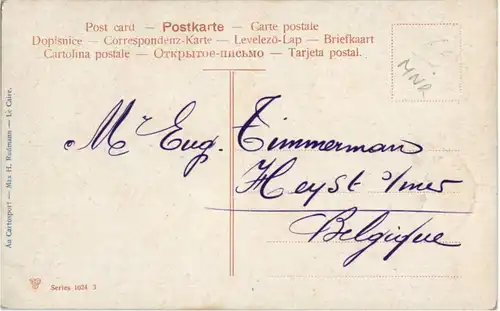 Post card — Postkarte — Carte postale
Dopisnice — Correspondenz-Karte — Levelező-Lap — Briefkaart
Cartolina postale — Открытое-письмо — Tarjeta postal.
MNR
Mr Eug. Timmerman
Heyst s/mer
Belgique
Au Cartosport — Max H. Rudmann — Le Caire.
Series 1024 3